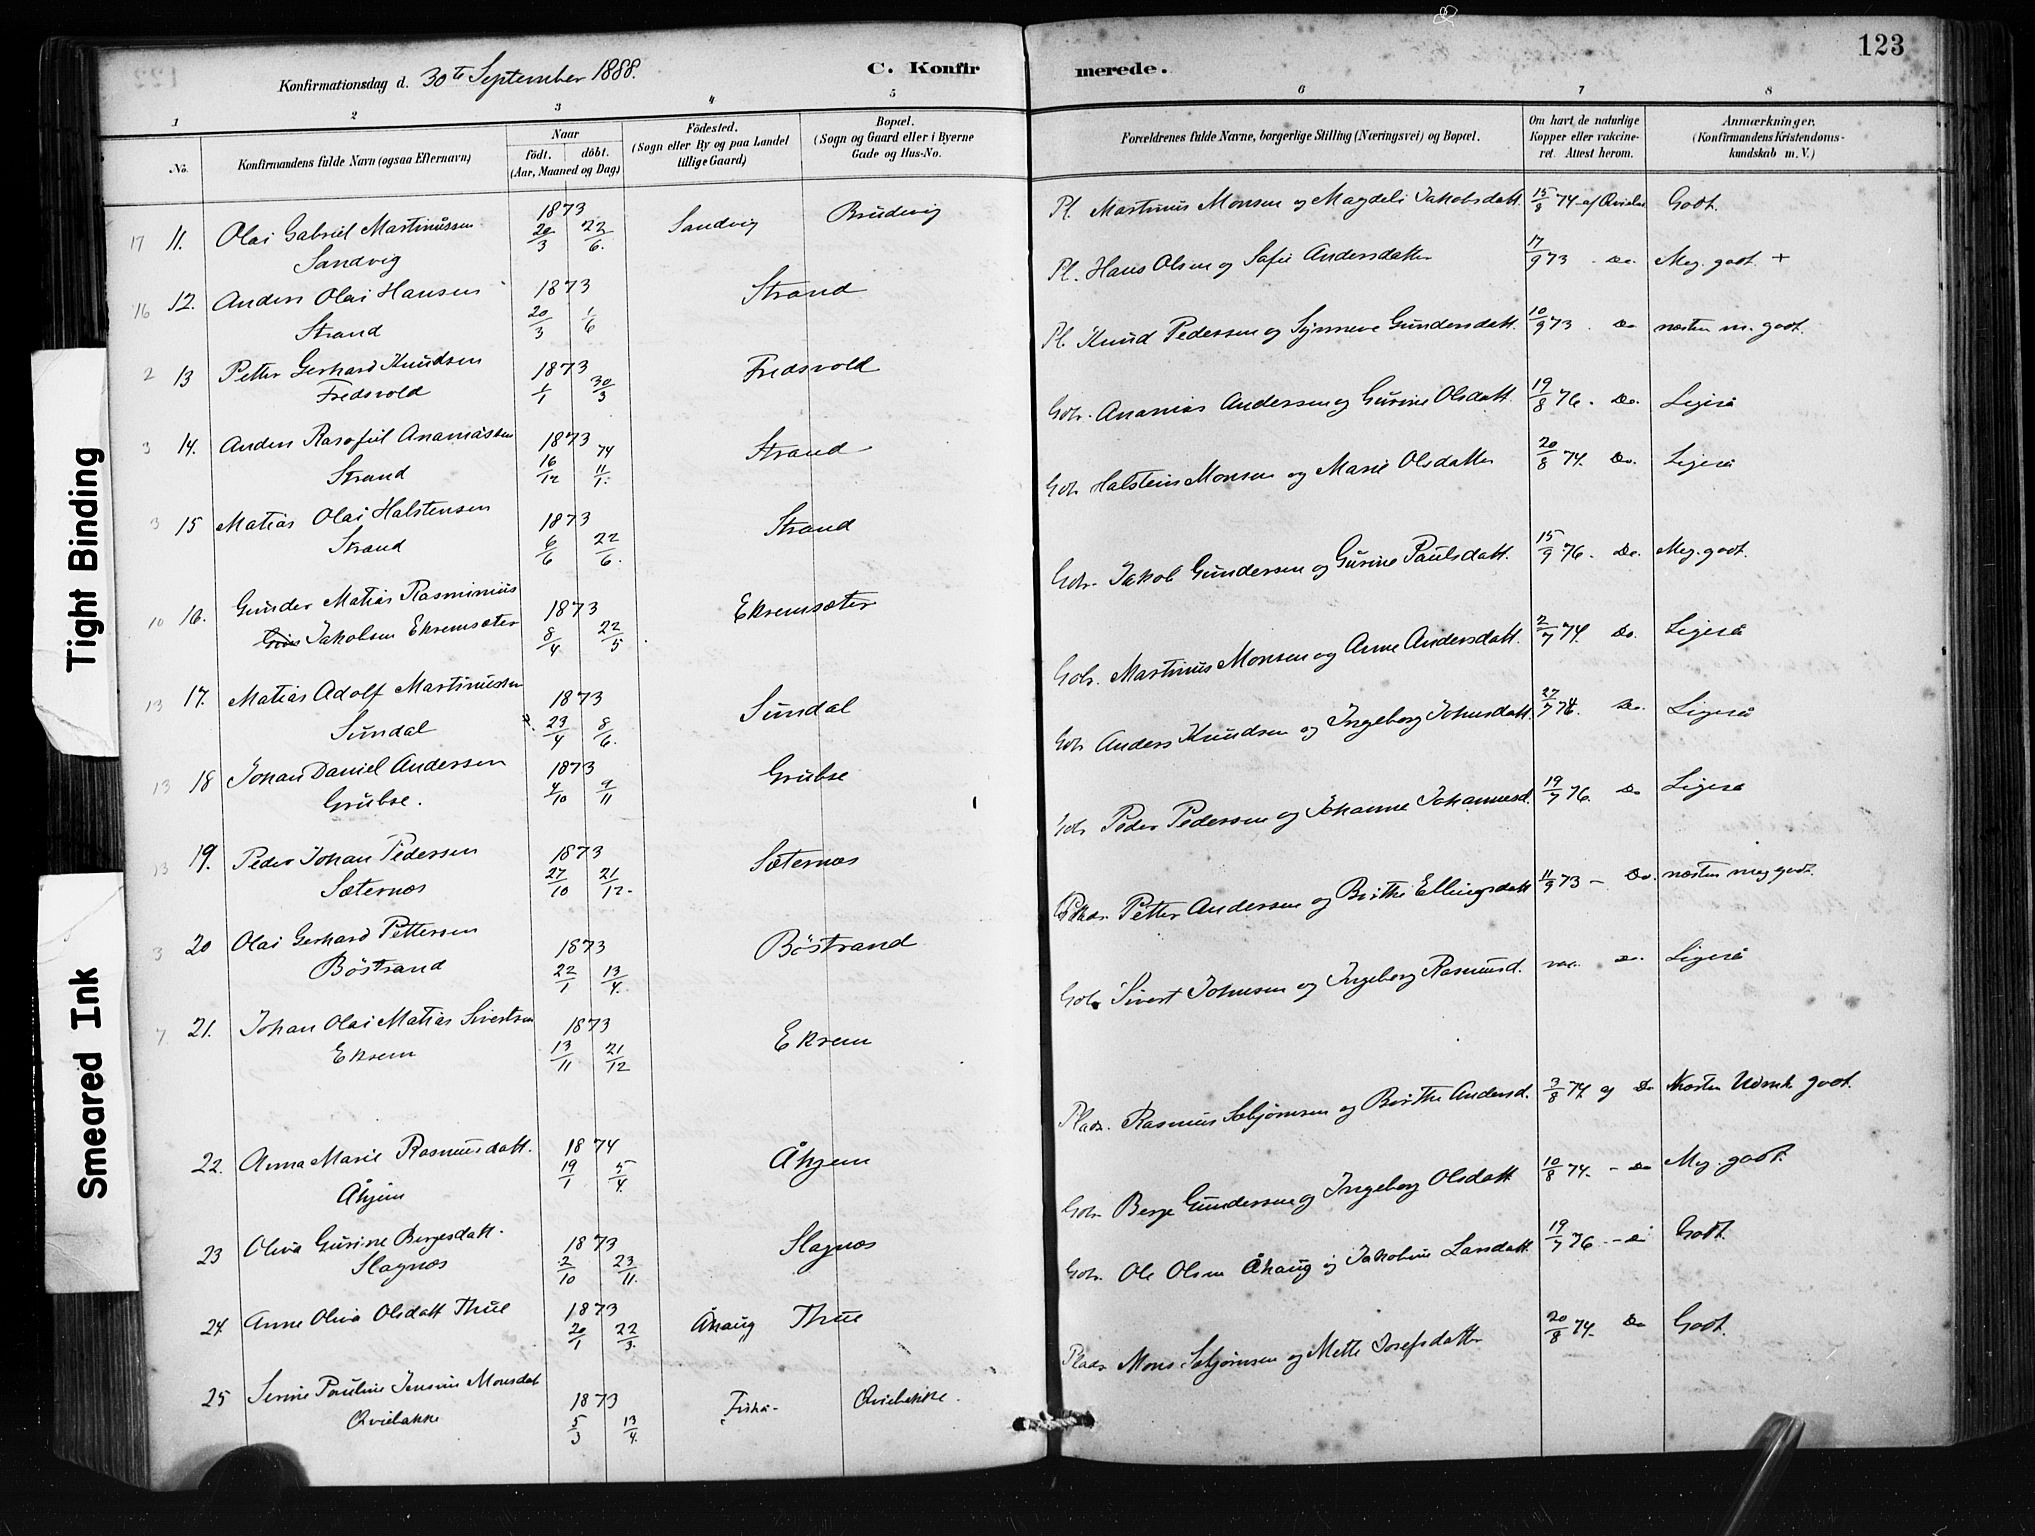 123
Konfirmationsdag d. 30te September 1888.
C. Konfirmerede.
1 2 3 4 5 6 7 8
No.
Konfirmandens fulde Navn (ogsaa Efternavn)
Naar
født. døbt.
(Aar, Maaned og Dag)
Fødested.
(Sogn eller By og paa Landet
tillige Gaard)
Bopæl.
(Sogn og Gaard eller i Byerne
Gade og Hus-No.
Forældrenes fulde Navne, borgerlige Stilling (Næringsvei) og Bopæl.
Om havt de naturlige
Kopper eller vakcine-
ret. Attest herom.
Anmærkninger.
(Konfirmandens Kristendoms-
kundskab m. V.)
17 11. Olai Gabriel Martinussen 1873 20/3 22/6. Sandvig Brudevig Pl. Martinus Monsen og Magdeli Jakobsdatt. 15/8 74 af Godt.
Sandvig
16 12. Anders Olai Hansen 1873 20/3 1/6 Strand Pl. Hans Olsen og Sofie Andersdatter 17/9 73 - Do. Meg. godt. +
Strand
2 13 Petter Gerhard Knudsen 1873 1/1 30/3 Fredsvold Pl. Knud Pedersen og Synneve Gundersdatt. 10/9 73. Do næsten m. godt.
Fredsvold
3 14. Anders Rasofiel Ananiassen 1873 16/12 74 11/1. Strand Gbr. Ananias Andersen og Gurine Olsdatt. 19/8 76. Do. Ligeså
Strand
3 15 Matias Olai Halstensen 1873 6/6 22/6. Strand Gbr Halstein Monsen og Marie Olsdatter 20/8 74. Do. Ligeså
Strand
10 16. Gunder Matias Rasminius 1873 8/4 22/5 Ekremsæter Gbr. Jakob Gundersen og Gurine Paulsdatt. 15/9 76. Do. Meg. godt.
Jakobsen Ekremsæter
13 17. Matias Adolf Martinussen 1873 23/4 8/6. Sundal Gbr. Martinus Monsen og Anne Andersdatt. 2/7 74. Do. Ligeså
Sundal
13 18 Johan Daniel Andersen 1873 4/10 9/11 Grubse Gbr Anders Knudsen og Ingeborg Johnsdatt. 27/7 74. Do. Ligeså
Grubse.
13 19. Peder Johan Pedersen 1873 27/10 21/12. Sæternæs Gbr Peder Pedersen og Johanne Johannesd. 19/7 76. Do Ligeså
Sæternæs
3 20 Olai Gerhard Pettersen 1873 22/1 13/4. Böstrand Petter Andersen og Birthe Ellingsdatt 11/9 73 - Do. næsten meg godt.
Böstrand
7 21. Johan Olai Matias Sivertsen 1873 13/11 21/12 Ekrem Gbr. Sivert Johnsen og Ingeborg Rasmusd. vac. Do. Ligeså
Ekrem
22. Anna Marie Rasmusdatt. 1874 19/1 5/4. Åhjem Plads. Rasmus Sæbjørnsen og Birthe Andersd. 3/8 74 af Do Næsten Udmk godt.
Åhjem
23 Oliva Gurine Bergesdatt. 1873 2/10 23/11. Slagnæs Gbr. Berge Gundersen og Ingeborg Olsdatt 10/8 74. - Do Meg. godt.
Slagnæs
24. Anne Oliva Olsdatt Thue 1873 20/1 22/3. Åhaug Thue Gbr. Ole Olsen Åhaug og Jakobine Larsdatt. 19/7 76 - Do Godt.
25 Serine Pauline Jensine Monsdat 1873 5/3 13/4. Qvielakke. Plads Mons Sæbjørnsen og Mette Josefsdatter 20/8 74. Do Godt.
Qvielakke
Tight Binding
Smeared Ink